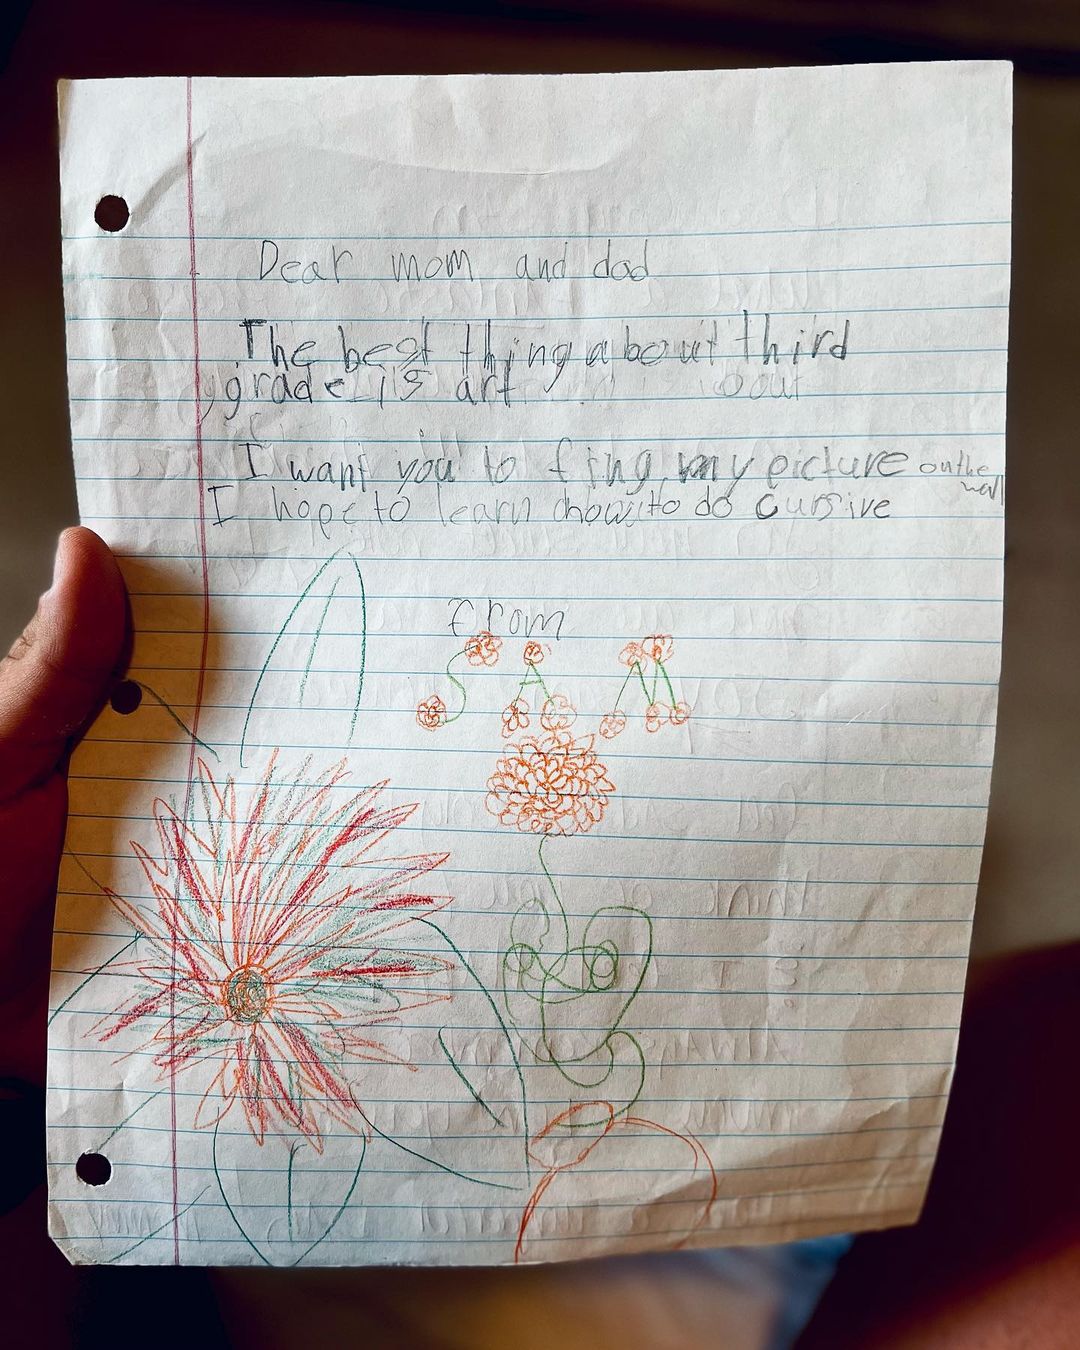 Dear mom and dad
The best thing about third
grade is art
I want you to fing my picture on the
wall
I hope to learn how to do cursive
from
SAM